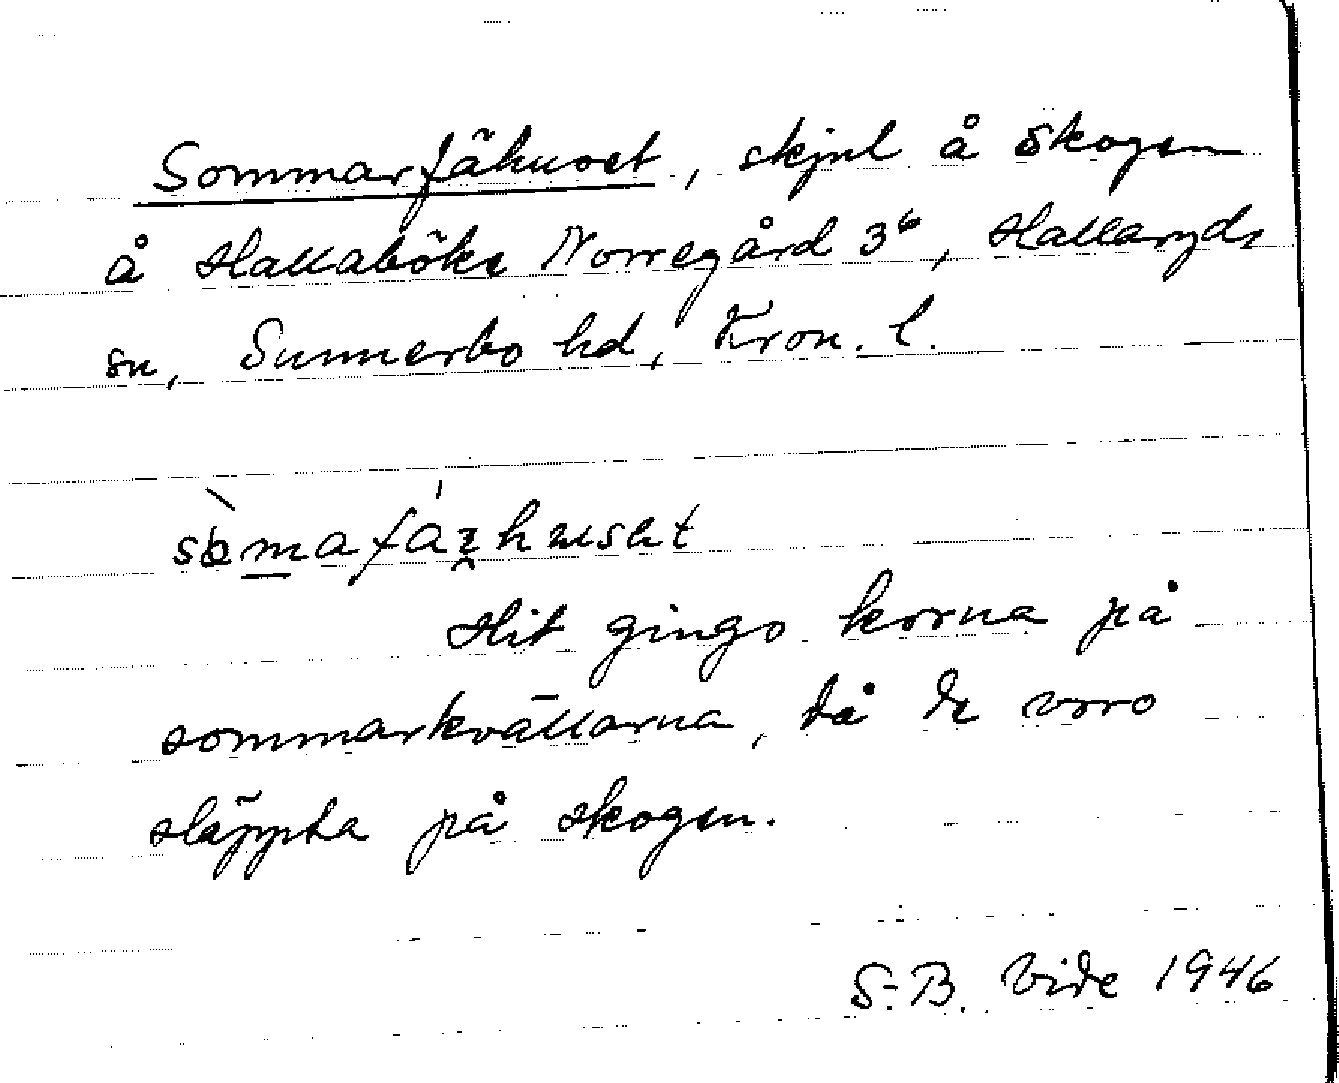 Sommarfähuset, skjul å skogen
å Hallaböks Norregård 3⁶, Hallaryds
sn, Sunnerbo hd, Kron. l.
Hit gingo korna på
sommarkvällarna, då de voro
släppta på skogen.
S-B. Vide 1946